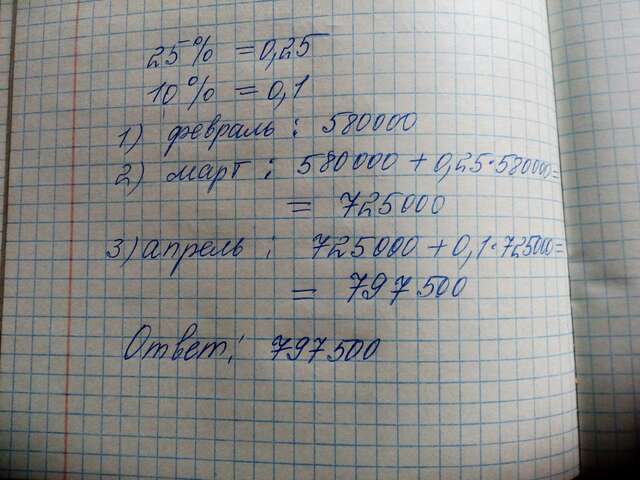 25% = 0,25
10% = 0,1
1) февраль: 580000
2) март: 580000 + 0,25·580000=
= 725000
3) апрель: 725000 + 0,1·725000=
= 797500
Ответ: 797500